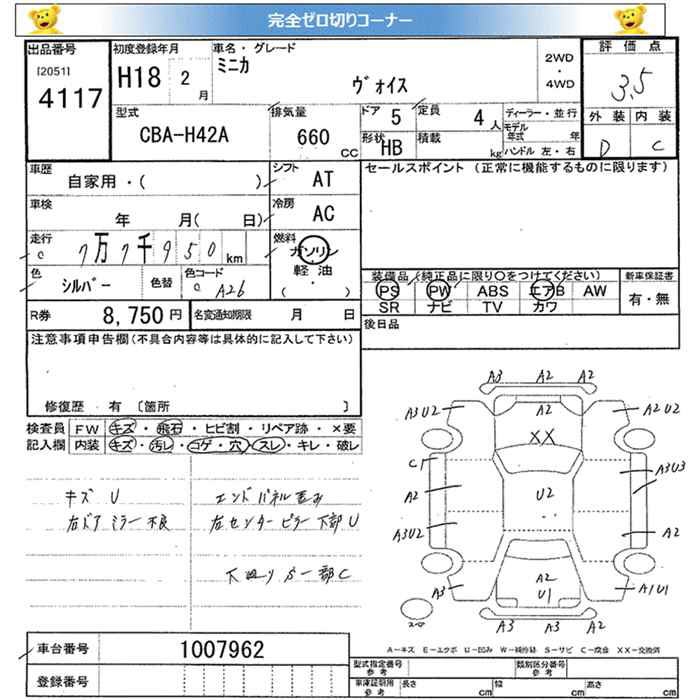 完全ゼロ切りコーナー
出品番号 [2051] 4117
初度登録年月 H18 2月
車名・グレード ミニカ ヴォイス
2WD・4WD
評価点 3.5
外装 D 内装 C
型式 CBA-H42A
排気量 660 CC
ドア 5
定員 4人
形状 HB
積載 kg
ディーラー・並行
モデル年式 年
ハンドル 左・右
車歴 自家用・( )
シフト AT
車検 年 月( 日)
冷房 AC
走行 7万7千950km
燃料 ガソリン・軽油・( )
色 シルバー 色替 色コード A26
R券 8,750円 名変通知期限 月 日
セールスポイント(正常に機能するものに限ります)
装備品(純正品に限り○をつけてください) 新車保証書
PS PW ABS エアB AW 有・無
SR ナビ TV カワ
後日品
注意事項申告欄(不具合内容等は具体的に記入して下さい)
修復歴 有〔箇所 〕
検査員記入欄
FW キズ・飛石・ヒビ割・リペア跡・×要
内装 キズ・汚レ・コゲ・穴・スレ・キレ・破レ
キズ U
右ドアミラー不良
エンドパネル歪み
左センターピラー下部U
下回り S一部C
A3 A2 A2
A3U2 A2 A2U2
XX
C1 A3U3
A2 U2
A3U2 A2
A2
A3 U1 A1U1
A3 A3 A2
A−キズ E−エクボ U−凹み W−補修跡 S−サビ C−腐食 XX−交換済
車台番号 1007962
登録番号
型式指定番号 参考 類別区分番号 参考
車庫証明用 参考 長さ cm 幅 cm 高さ cm